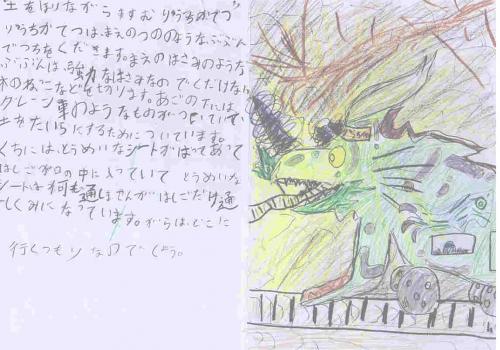 "土をほりながらすすむ りゅうちかてつ"
りゅうちかてつは、まえのつののようなぶぶん
でつちをくだきます。まえのはさみのような
ぶぶんは、強力なはさみなのでくだけない
木のねっこなどを切ります。あごの下には
クレーン車のようなものがついていて
土をたいらにするためについています。
くちには、とうめいなシートがはってあって
はしごが口の中に入っていて とうめいな
シートは何も通しませんがはしごだけ通
しくみになっています。がらは、どこに
行くつもりなのでしょう。